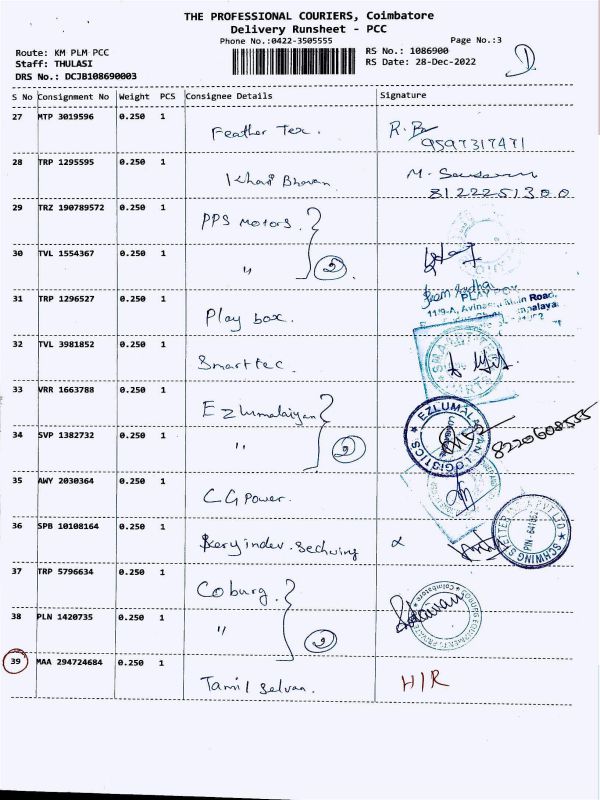 THE PROFESSIONAL COURIERS, Coimbatore
Delivery Runsheet - PCC
Phone No.:0422-3505555 Page No.:3
Route: KM PLM PCC RS No.: 1086900
Staff: THULASI RS Date: 28-Dec-2022
DRS No.: DCJB108690003
S No Consignment No Weight PCS Consignee Details Signature
27 MTP 3019596 0.250 1
Feather Tex. R.
9597317471
28 TRP 1295595 0.250 1
Khari Bhavan M.
8122251300
29 TRZ 190789572 0.250 1
PPS Motors.
30 TVL 1554367 0.250 1
" 2
31 TRP 1296527 0.250 1
Play box. PLAY BOX
11/9-A, Avinashi Main Road,
32 TVL 3981852 0.250 1
Smart tec.
33 VRR 1663788 0.250 1
Ezlumalaiyan EZLUMALAIYAN LOGISTICS
34 SVP 1382732 0.250 1 8220608555
" 2
35 AWY 2030364 0.250 1
C G Power.
36 SPB 10108164 0.250 1
SCHWING STETTER
37 TRP 5796634 0.250 1
Coburg. Coimbatore
38 PLN 1420735 0.250 1
" 2
39 MAA 294724684 0.250 1
Tamil Selvan. H/R